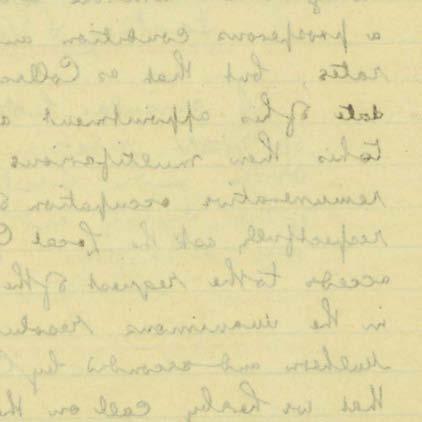 a prosperous condition an
rates, but that as Colle
date of his appointment a
to his then multifarious
remunerative occupation
respectfully ask the Local
accede to the request of the
in the unanimous resolu
Mulhern and seconded by
that we hereby call on the